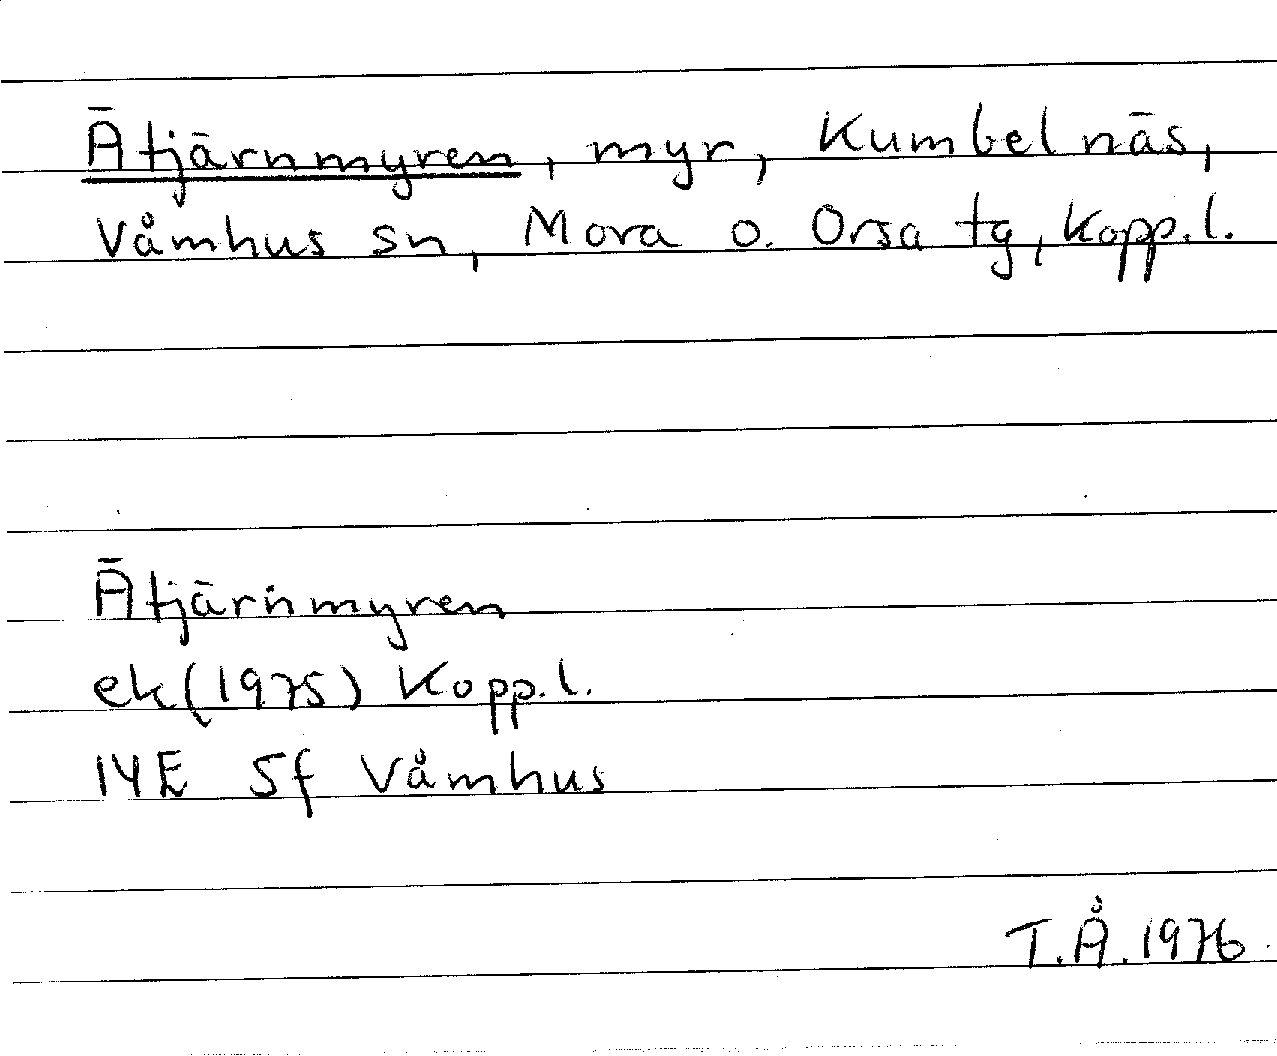 Ätjärnmyren, myr, Kumbelnäs,
Våmhus sn, Mora o. Orsa tg, Kopp.l.
Ätjärnmyren
ek (1975) Kopp.l.
14E 5f Våmhus
T.Å. 1976